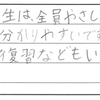 生は、全員やさし
分かりやすいです
復習などもい